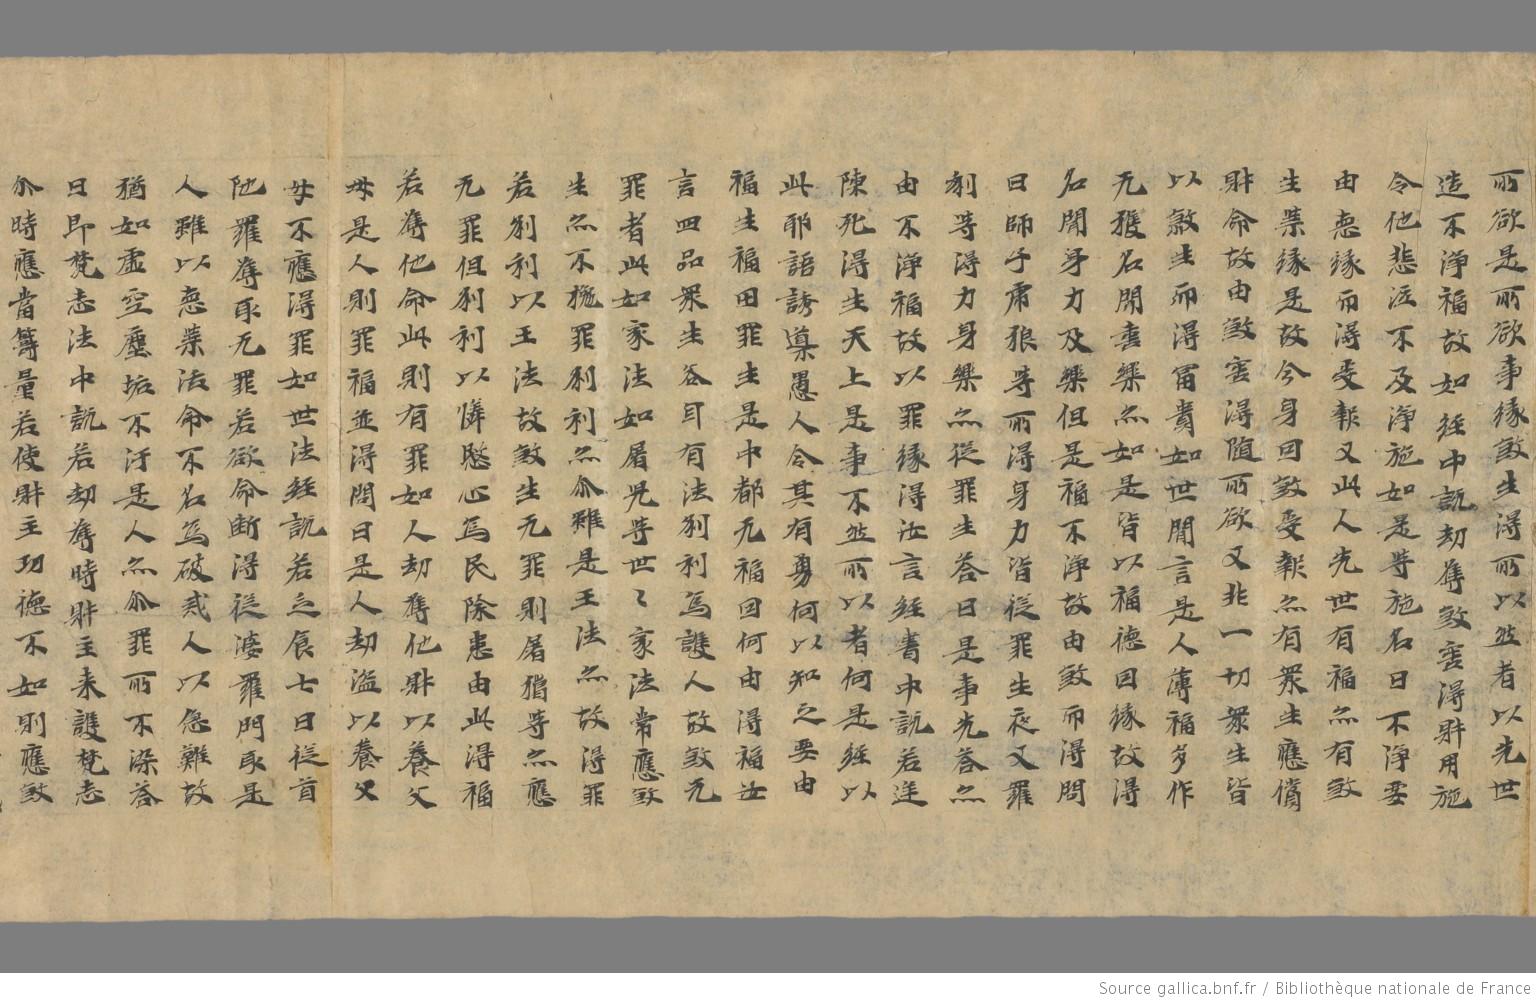 所欲是所欲事緣煞生得所以然者以先世
造不淨福故如經中說劫奪煞害得財用施
令他悲泣不及淨施如是等施名曰不淨要
由惡緣而得受報又此人先世有福亦有煞
生業緣是故今身因煞受報亦有眾生應償
財命故由煞害得隨所欲又非一切眾生皆
以煞生而得冨貴如世間言是人薄福多作
无獲名聞喜樂亦如是皆以福德因緣故得
名聞身力及樂但是福不淨故由煞而得問
曰師子虎狼等所得身力皆從罪生夜叉羅
剎等得力身樂亦從罪生答曰是事先答亦
由不淨福故以罪緣得汝言經書中說若逆
陳死得生天上是事不然所以者何是經以
此耶語誘導愚人令其有勇何以知之要由
福生福田罪生是中都无福因何由得福汝
言四品眾生各自有法剎利為護人故煞无
罪者此如家法如屠兒等世〻家法常應煞
生亦不免罪剎利亦尒雖是王法亦故得罪
若剎利以王法故煞生无罪則屠獵等亦應
无罪但剎利以憐愍心為民除患由此得福
若奪他命此則有罪如人劫奪他財以養父
母是人則罪福並得問曰是人劫盜以養父
母不應得罪如世法經說若乏食七日從首
陀羅奪取无罪若欲命斷得從婆羅門取是
人雖以惡業活命不名為破戒人以急難故
猶如虛空塵垢不汙是人亦尒罪所不染答
曰即梵志法中說若劫奪時財主來護梵志
尒時應當籌量若使財主功德不如則應煞